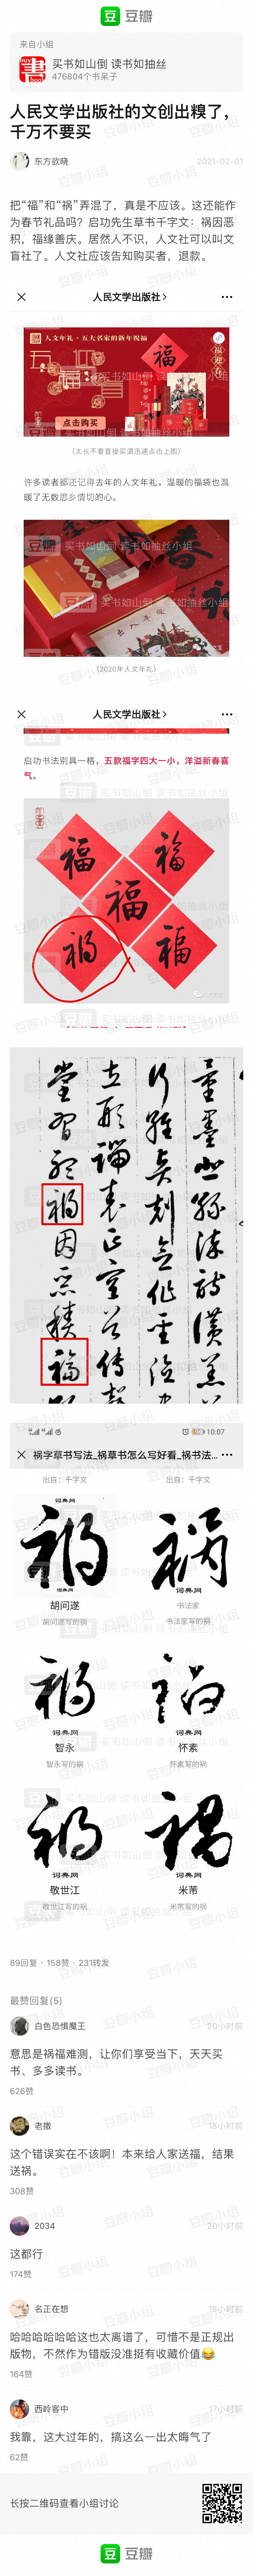 豆瓣
来自小组
买书如山倒 读书如抽丝
476804个书呆子
人民文学出版社的文创出糗了，
千万不要买
东方欲晓
2021-02-01
把“福”和“祸”弄混了，真是不应该。这还能作
为春节礼品吗？启功先生草书千字文：祸因恶
积，福缘善庆。居然人不识，人文社可以叫文
盲社了。人文社应该告知购买者，退款。
人民文学出版社
人文年礼·五大名家的新年祝福
福
点击购买
（太长不看直接买请迅速点击上图）
许多读者都还记得去年的人文年礼，温暖的福袋也温
暖了无数思乡情切的心。
（2020年人文年礼）
人民文学出版社
启功书法别具一格，五款福字四大一小，洋溢新春喜
气。
福
福
福
祸
福
祸字草书写法_祸草书怎么写好看_祸书法...
10:07
出自：千字文
出自：千字文
词典网
胡问遂
胡问遂写的祸
词典网
书法家
书法家写的祸
词典网
智永
智永写的祸
词典网
怀素
怀素写的祸
词典网
敬世江
敬世江写的祸
词典网
米芾
米芾写的祸
89回复 · 158赞 · 231转发
最赞回复(5)
白色恐惧魔王
20小时前
意思是祸福难测，让你们享受当下，天天买
书、多多读书。
626赞
老撒
18小时前
这个错误实在不该啊！本来给人家送福，结果
送祸。
308赞
2034
20小时前
这都行
174赞
名正在想
18小时前
哈哈哈哈哈哈这也太离谱了，可惜不是正规出
版物，不然作为错版没准挺有收藏价值😂
164赞
西岭客中
17小时前
我靠，这大过年的，搞这么一出太晦气了
62赞
长按二维码查看小组讨论
豆瓣